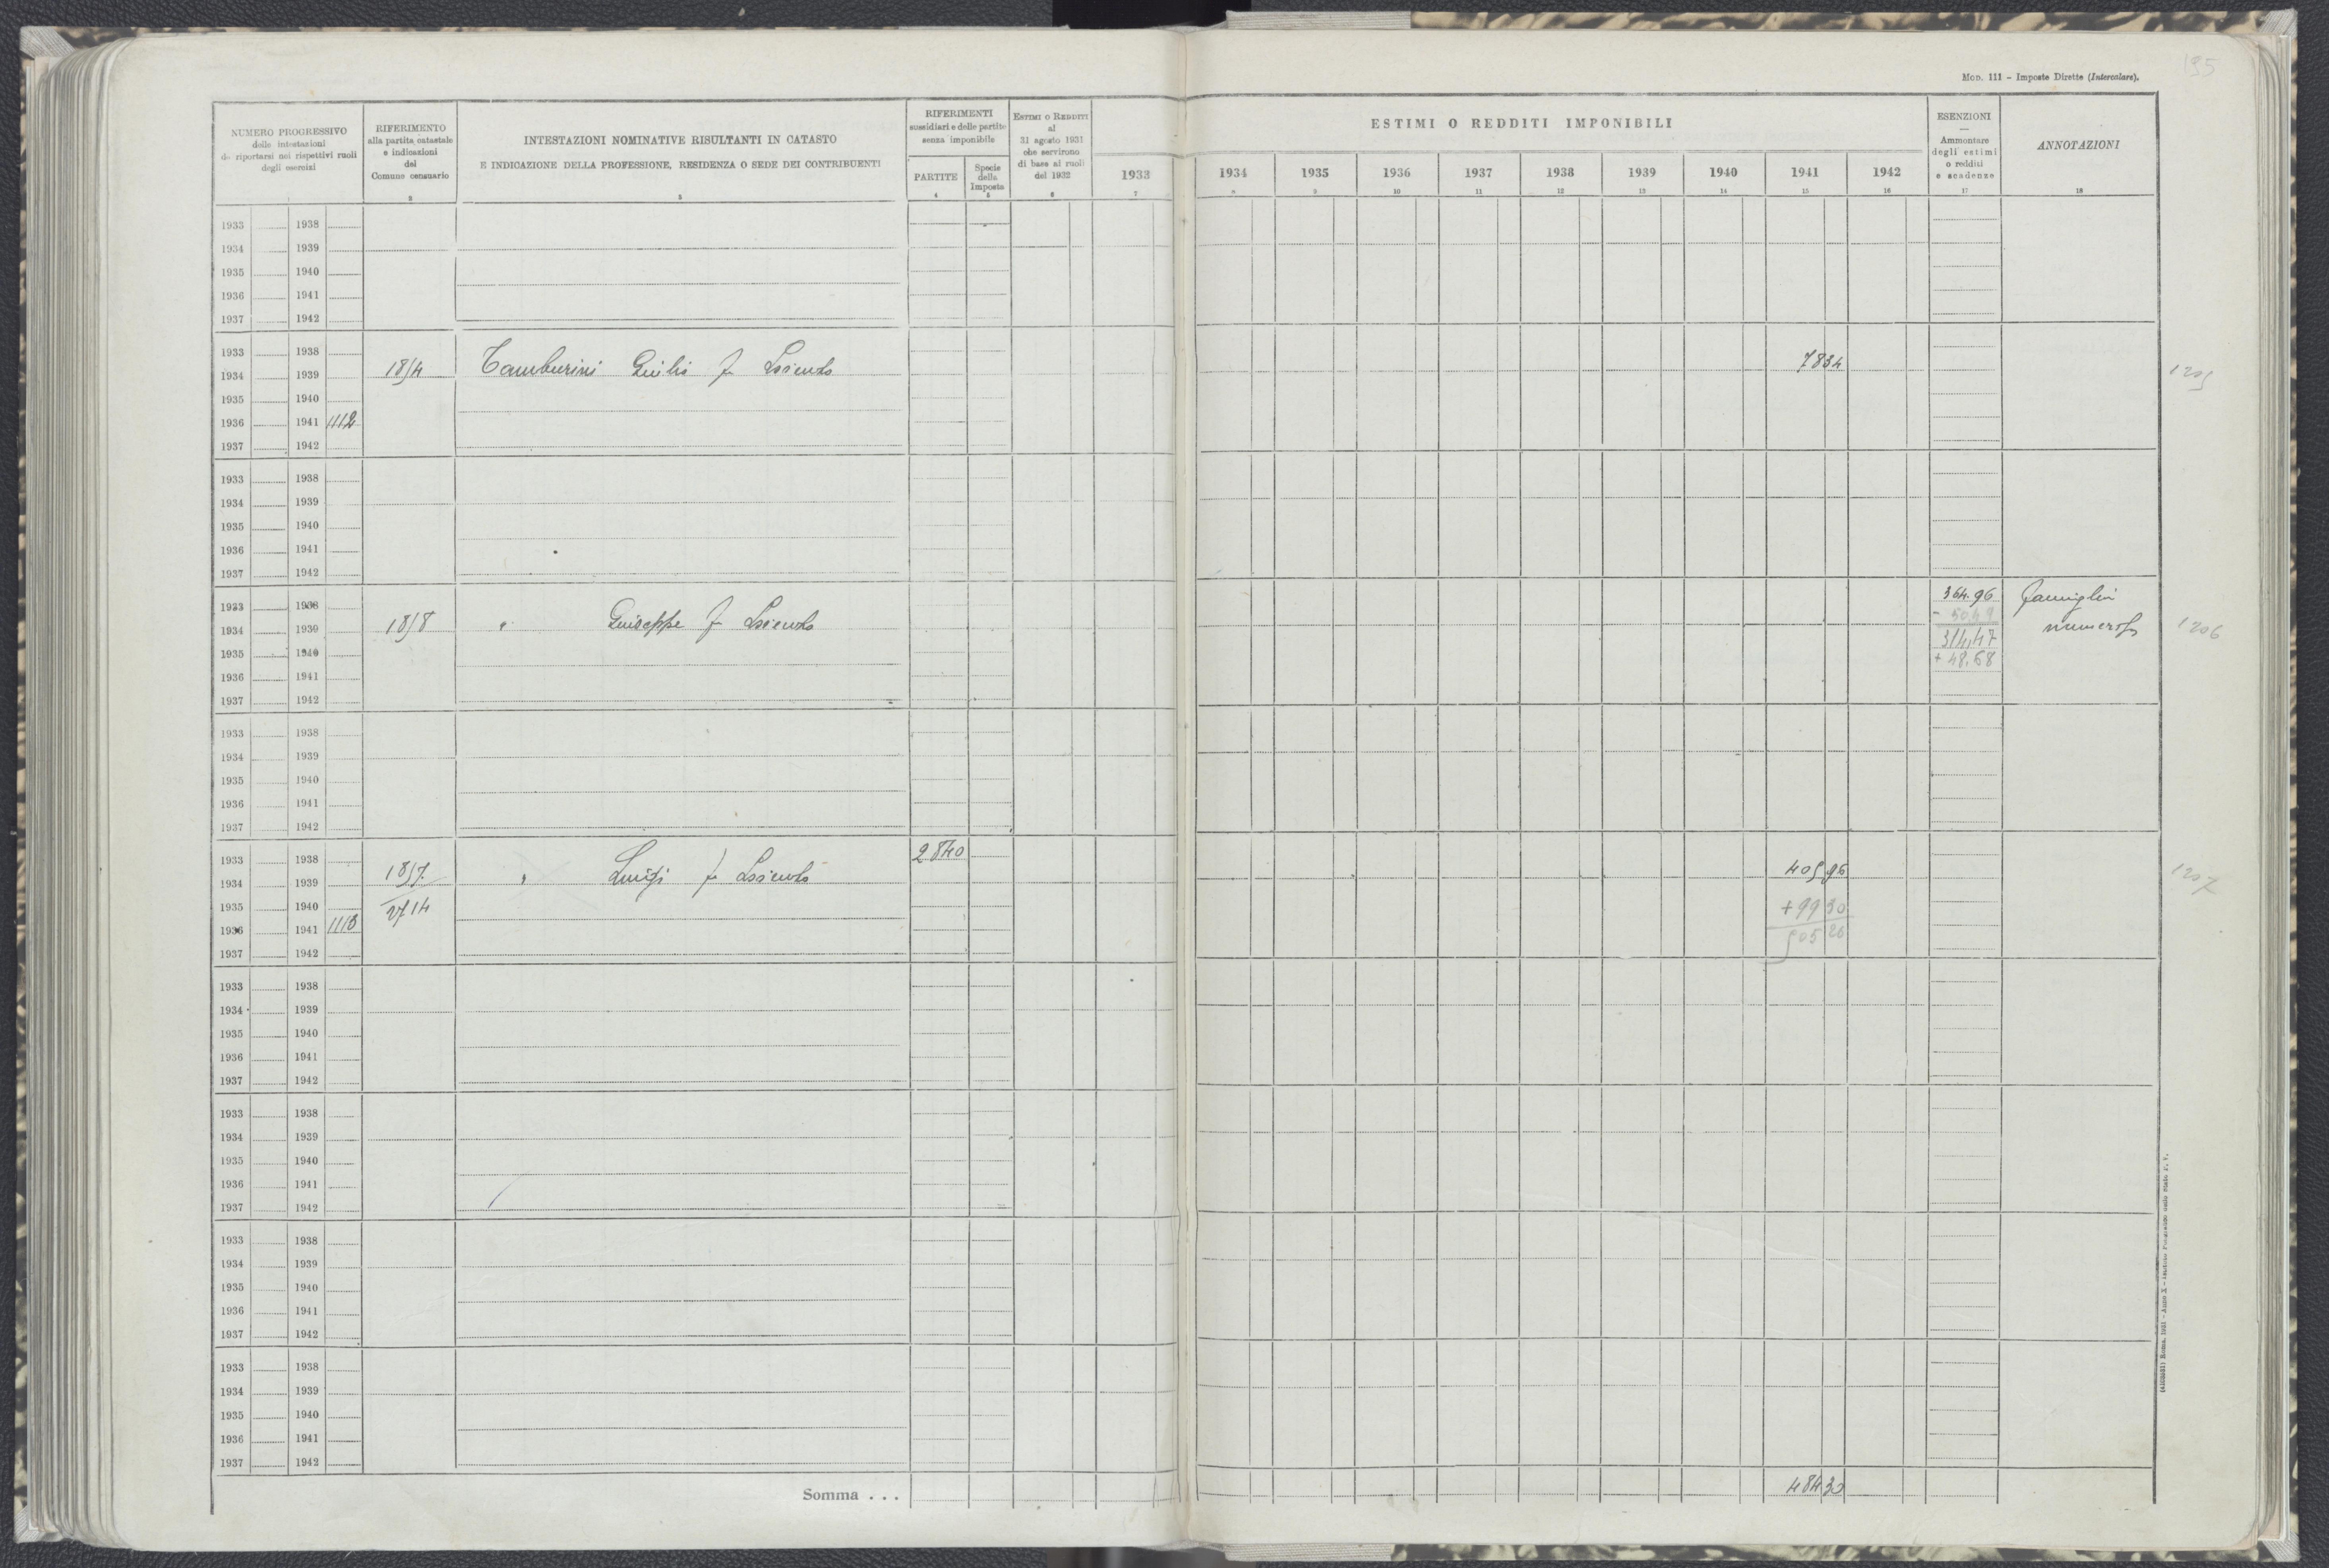 195
MOD. 111 - Imposte Dirette (Intercalare).
NUMERO PROGRESSIVO
delle intestazioni
da riportarsi nei rispettivi ruoli
degli esercizi
RIFERIMENTO
alla partita catastale
e indicazioni
del
Comune censuario
2
INTESTAZIONI NOMINATIVE RISULTANTI IN CATASTO
E INDICAZIONE DELLA PROFESSIONE, RESIDENZA O SEDE DEI CONTRIBUENTI
3
RIFERIMENTI
sussidiari e delle partite
senza imponibile
PARTITE
4
Specie
della
Imposta
5
ESTIMI O REDDITI
al
31 agosto 1931
che servirono
di base ai ruoli
del 1932
6
1933
7
ESTIMI O REDDITI IMPONIBILI
1934 1935 1936 1937 1938 1939 1940 1941 1942
8 9 10 11 12 13 14 15 16
ESENZIONI
—
Ammontare
degli estimi
o redditi
e scadenze
17
ANNOTAZIONI
18
1933 1938
1934 1939
1935 1940
1936 1941
1937 1942
1933 1938
1934 1939 1854 Tamburini Giulio f 7834 1205
1935 1940
1936 1941 1112
1937 1942
1933 1938
1934 1939
1935 1940
1936 1941
1937 1942
1933 1938 364.96 famiglia
1934 1939 1858 " Giuseppe f - 50,49 numerosa 1206
1935 1940 314,47
1936 1941 + 48,68
1937 1942
1933 1938
1934 1939
1935 1940
1936 1941
1937 1942
1933 1938 1857 2840
1934 1939 " Luigi f 405,96 1207
1935 1940 2714 + 99 30
1936 1941 1113 505 26
1937 1942
1933 1938
1934 1939
1935 1940
1936 1941
1937 1942
1933 1938
1934 1939
1935 1940
1936 1941
1937 1942
1933 1938
1934 1939
1935 1940
1936 1941
1937 1942
1933 1938
1934 1939
1935 1940
1936 1941
1937 1942
Somma . . . 484 30